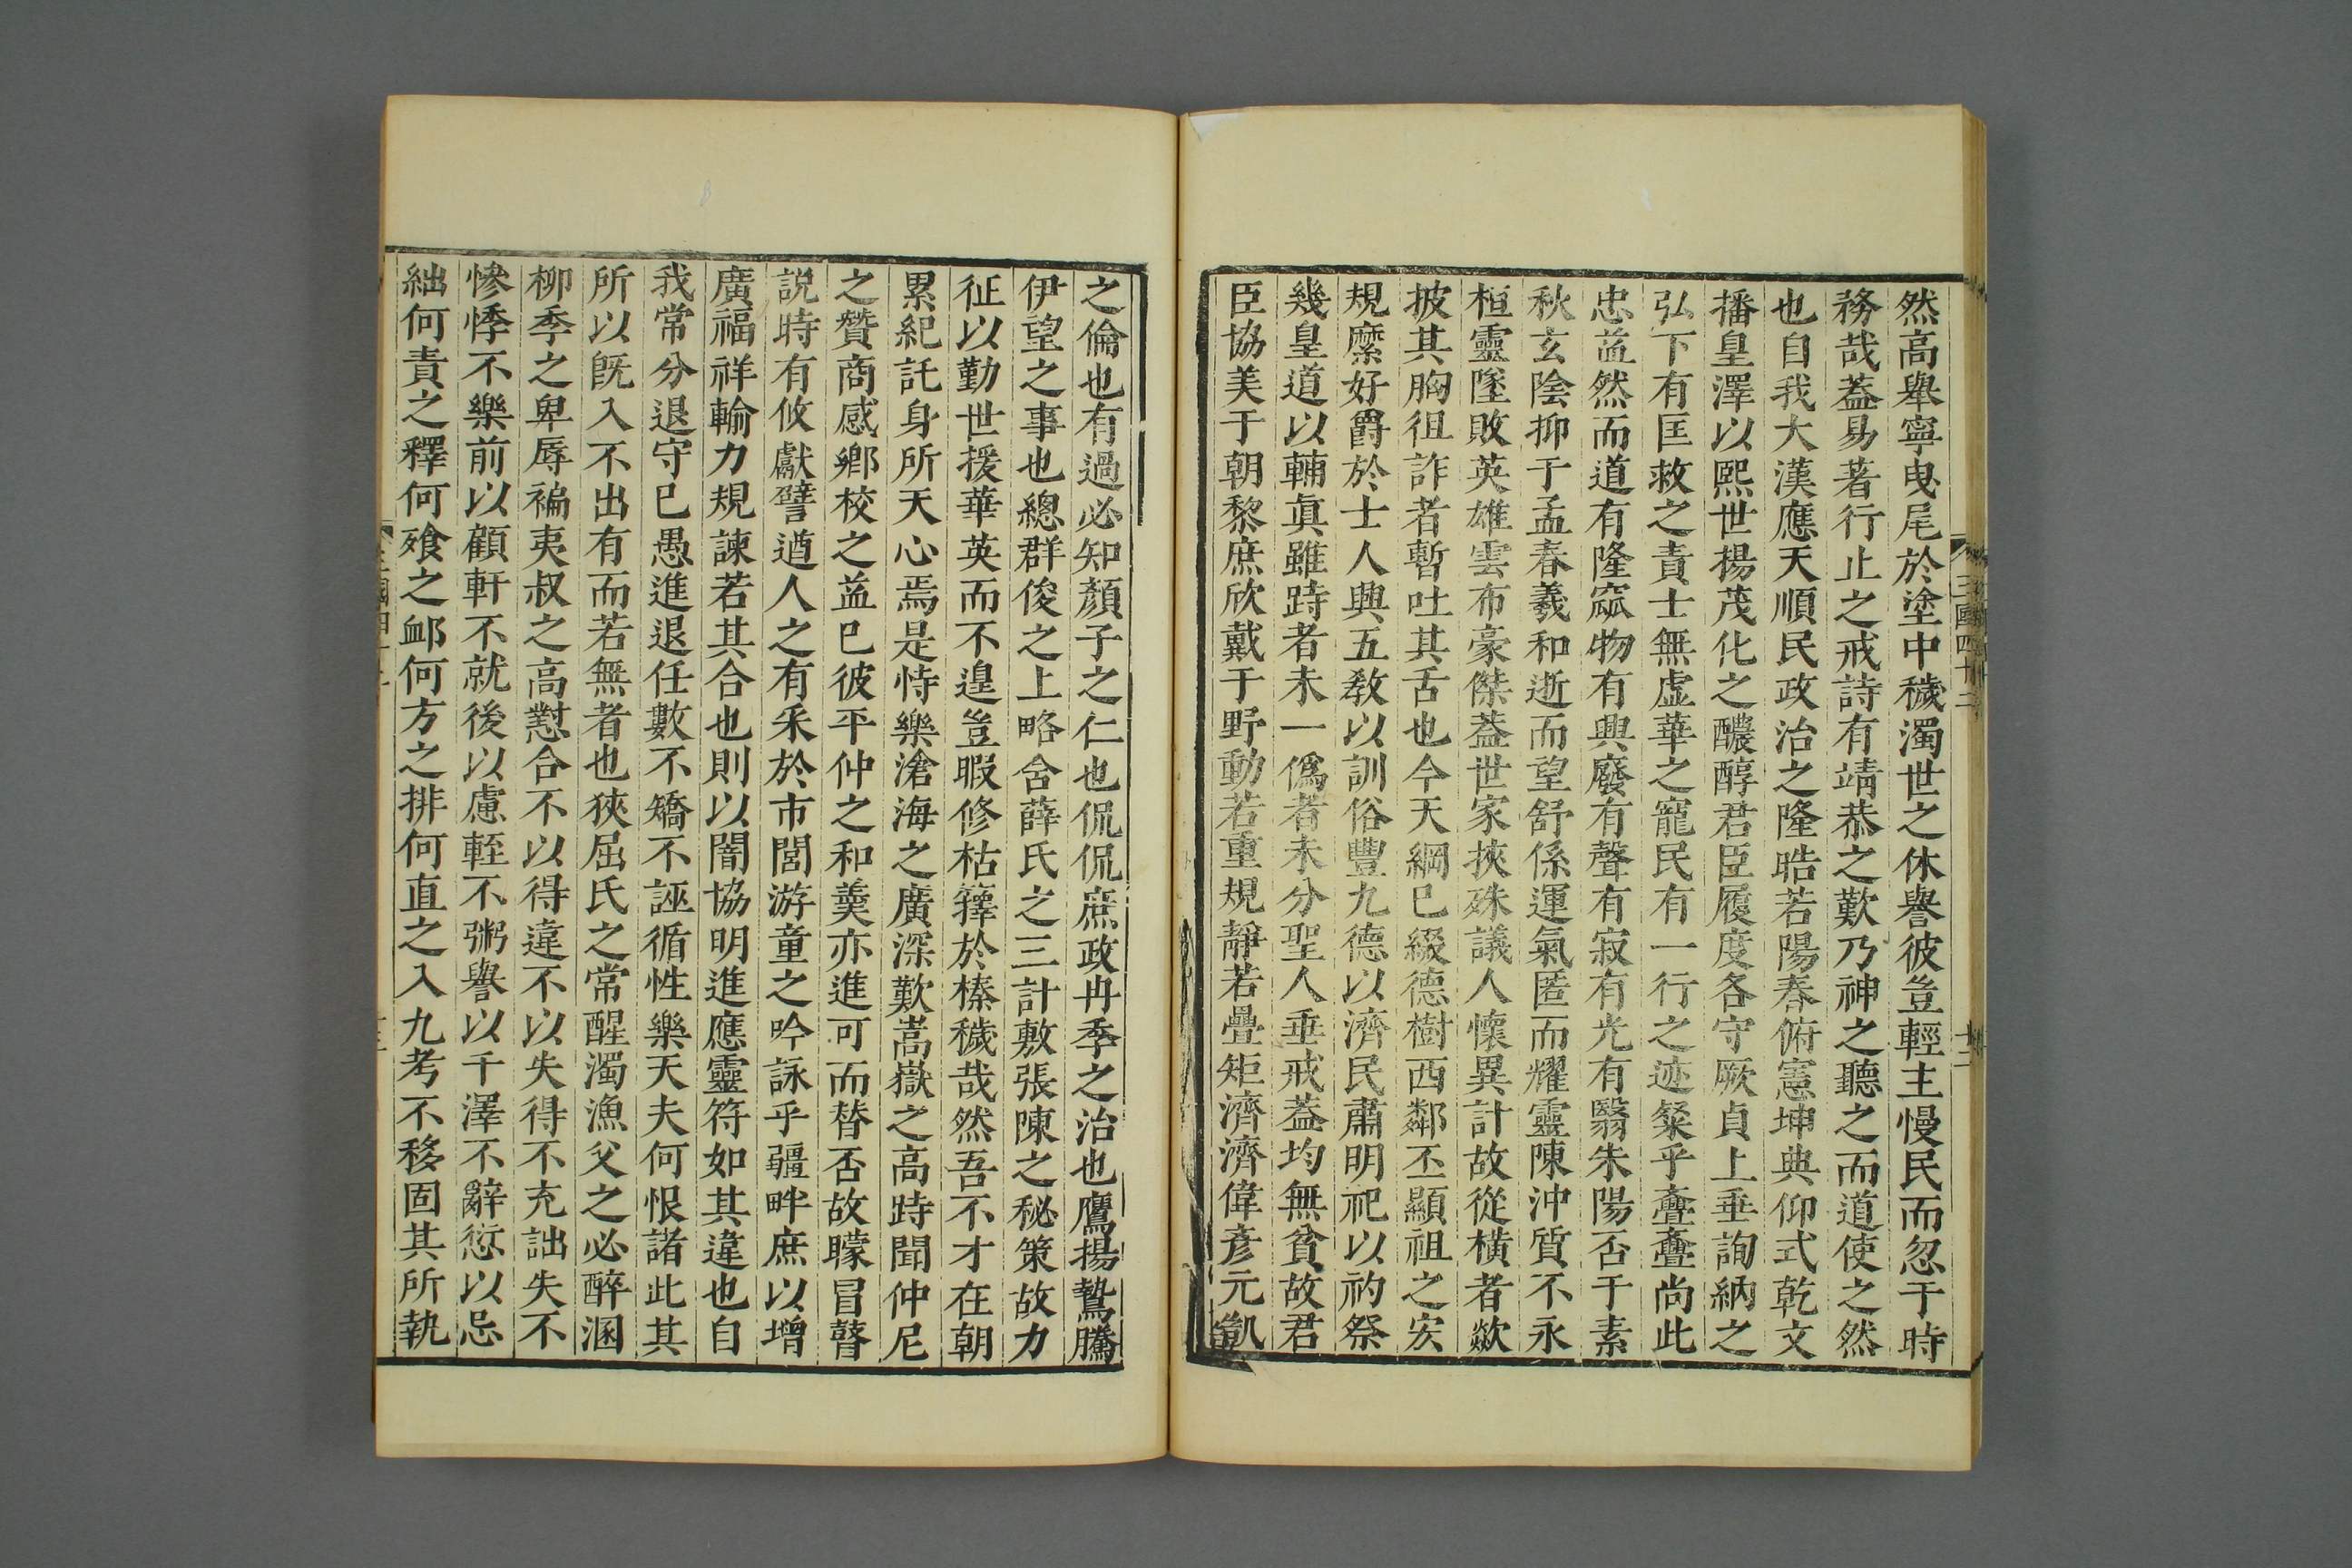 然高舉寧曳尾於塗中穢濁世之休譽彼豈輕主慢民而忽于時
務哉蓋易著行止之戒詩有靖恭之歎乃神之聽之而道使之然
也自我大漢應天順民政治之隆晧若陽春俯憲坤典仰式乾文
播皇澤以熙世揚茂化之醲醇君臣履度各守厥貞上垂詢納之
弘下有匡救之責士無虛華之寵民有一行之迹粲乎亹亹尚此
忠益然而道有隆窳物有興廢有聲有寂有光有翳朱陽否于素
秋玄陰抑于孟春羲和逝而望舒係運氣匿而耀靈陳沖質不永
桓靈墜敗英雄雲布豪傑蓋世家挾殊議人懷異計故從橫者歘
披其胸徂詐者暫吐其舌也今天綱已綴德樹西鄰丕顯祖之宏
規縻好爵於士人興五敎以訓俗豐九德以濟民肅明祀以礿祭
幾皇道以輔眞雖跱者未一僞者未分聖人垂戒蓋均無貧故君
臣協美于朝黎庶欣戴于野動若重規靜若疊矩濟濟偉彥元凱
之倫也有過必知顏子之仁也侃侃庶政冉季之治也鷹揚鷙騰
伊望之事也總群俊之上略含薛氏之三計敷張陳之秘策故力
征以勤世援華英而不遑豈暇修枯籜於榛穢哉然吾不才在朝
累紀託身所天心焉是恃樂滄海之廣深歎嵩嶽之高跱聞仲尼
之贊商感鄉校之益已彼平仲之和羹亦進可而替否故矇冒瞽
説時有攸獻譬遒人之有采於市閭游童之吟詠乎疆畔庶以增
廣福祥輸力規諫若其合也則以闇協明進應靈符如其違也自
我常分退守已愚進退任數不矯不誣循性樂天夫何恨諸此其
所以旣入不出有而若無者也狹屈氏之常醒濁漁父之必醉溷
柳季之卑辱褊夷叔之高懟合不以得違不以失得不充詘失不
慘悸不樂前以顧軒不就後以慮輊不粥譽以干澤不辭愆以忌
絀何責之釋何飱之卹何方之排何直之入九考不移固其所執
三國四十二
十二